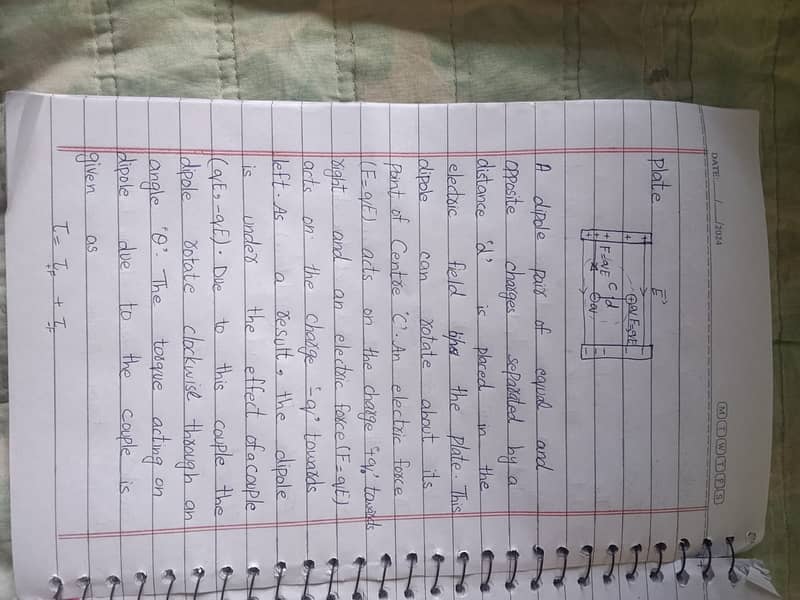 DATE: / /2024
M T W T F S
Plate
E
+q F=qE
C d
F=qE
-q
A dipole pair of equal and
opposite charges separated by a
distance 'd' is placed in the
electric field the plate. This
dipole can rotate about its
Point of Centre 'C'. An electric force
(F=qE) acts on the charge '+q' towards
right and an electric force (F=qE)
acts on the charge '-q' towards
left. As a result, the dipole
is under the effect of a couple
(qE, -qE). Due to this couple the
dipole rotate clockwise through an
angle 'θ'. The torque acting on
dipole due to the couple is
given as